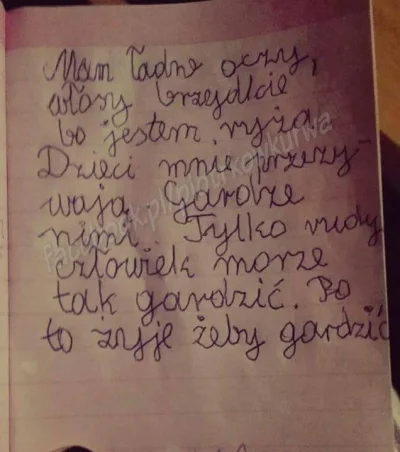 Mam ładne oczy,
włosy brzydkie
bo jestem ryża
Dzieci mnie przezy-
wają. Gardze
nimi. Tylko rudy
człowiek morze
tak gardzić. Bo
to żyje żeby gardzić